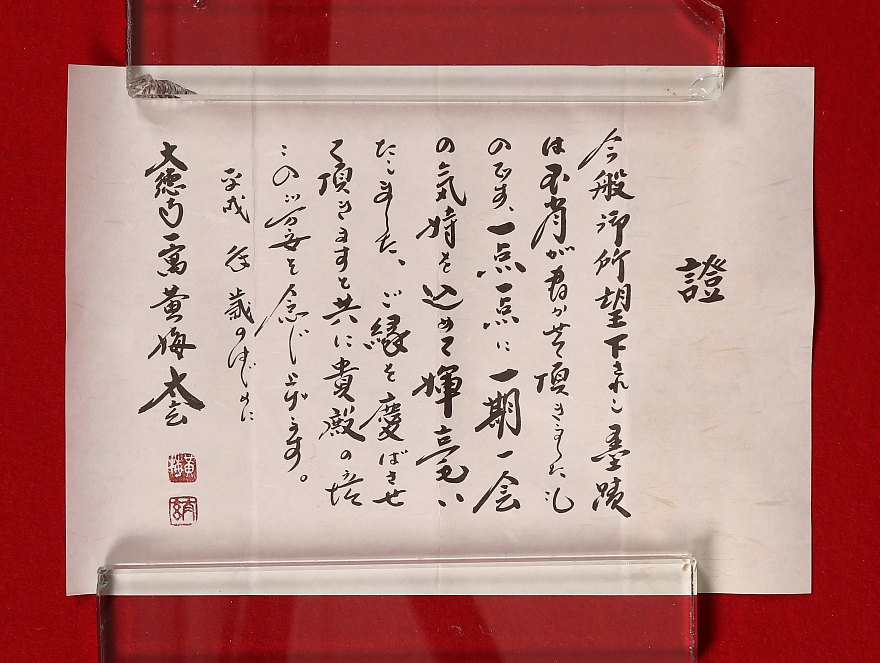 證
今般御所望下された墨蹟
は不肖が書かせて頂きましたもの
のです、一点一点に一期一会
の気持を込めて揮毫い
たしました、ご縁を慶ばさせ
て頂きますと共に貴殿の
この萬安を念じ上げます。
平成 歳のはじめに
大徳寺 黄梅 太玄
黄梅